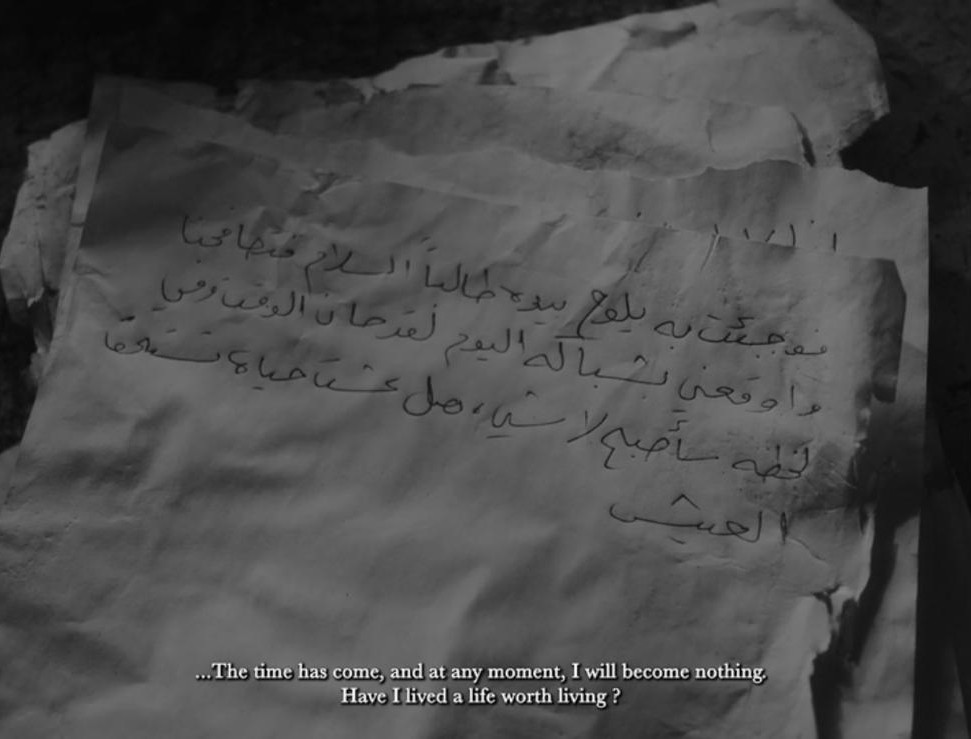 فوجئت به يلوح بيده طالباً السلام فتصافحنا
واوقعني بشباكه اليوم لقد حان الوقت وفي
لحظه سأصبح لا شيء، هل عشت حياة تستحق
العيش
...The time has come, and at any moment, I will become nothing.
Have I lived a life worth living ?